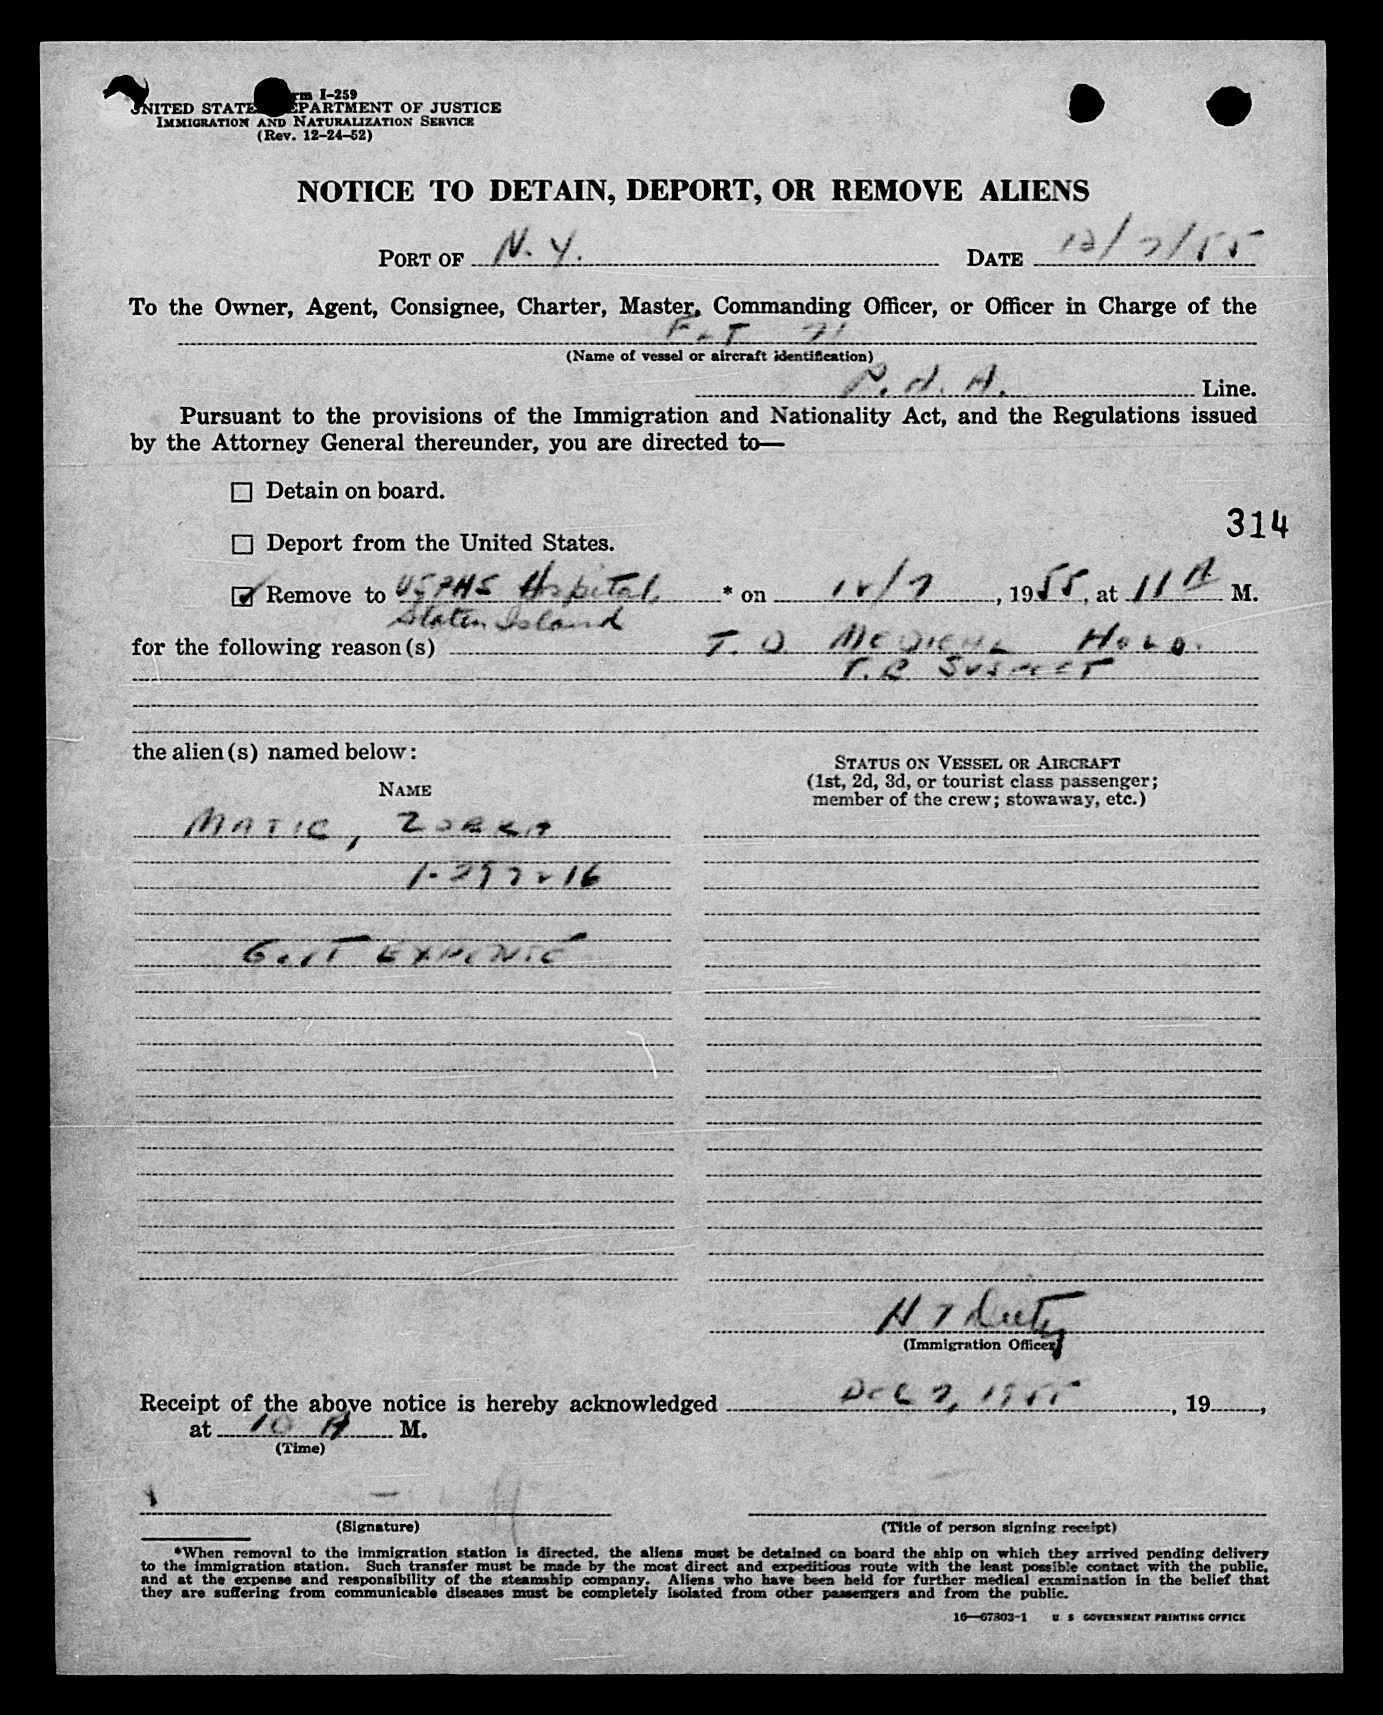 rm I-259
UNITED STATE EPARTMENT OF JUSTICE
IMMIGRATION AND NATURALIZATION SERVICE
(Rev. 12-24-52)
NOTICE TO DETAIN, DEPORT, OR REMOVE ALIENS
PORT OF N. Y. DATE 12/7/55
To the Owner, Agent, Consignee, Charter, Master, Commanding Officer, or Officer in Charge of the
71
(Name of vessel or aircraft identification)
Line.
Pursuant to the provisions of the Immigration and Nationality Act, and the Regulations issued
by the Attorney General thereunder, you are directed to—
Detain on board.
314
Deport from the United States.
Remove to USPHS Hospital, * on 12/7, 1955, at 11 A M.
Staten Island
for the following reason(s) T. D. MEDICAL HOLD.
T.B. SUSPECT
the alien(s) named below:
STATUS ON VESSEL OR AIRCRAFT
(1st, 2d, 3d, or tourist class passenger;
member of the crew; stowaway, etc.)
NAME
MATIC, ZORKA
GOVT EXPENSE
H
(Immigration Officer)
Receipt of the above notice is hereby acknowledged DEC 7, 1955, 19 ,
at 10 A M.
(Time)
(Signature) (Title of person signing receipt)
*When removal to the immigration station is directed, the aliens must be detained on board the ship on which they arrived pending delivery
to the immigration station. Such transfer must be made by the most direct and expeditious route with the least possible contact with the public,
and at the expense and responsibility of the steamship company. Aliens who have been held for further medical examination in the belief that
they are suffering from communicable diseases must be completely isolated from other passengers and from the public.
16—67303-1 U. S. GOVERNMENT PRINTING OFFICE